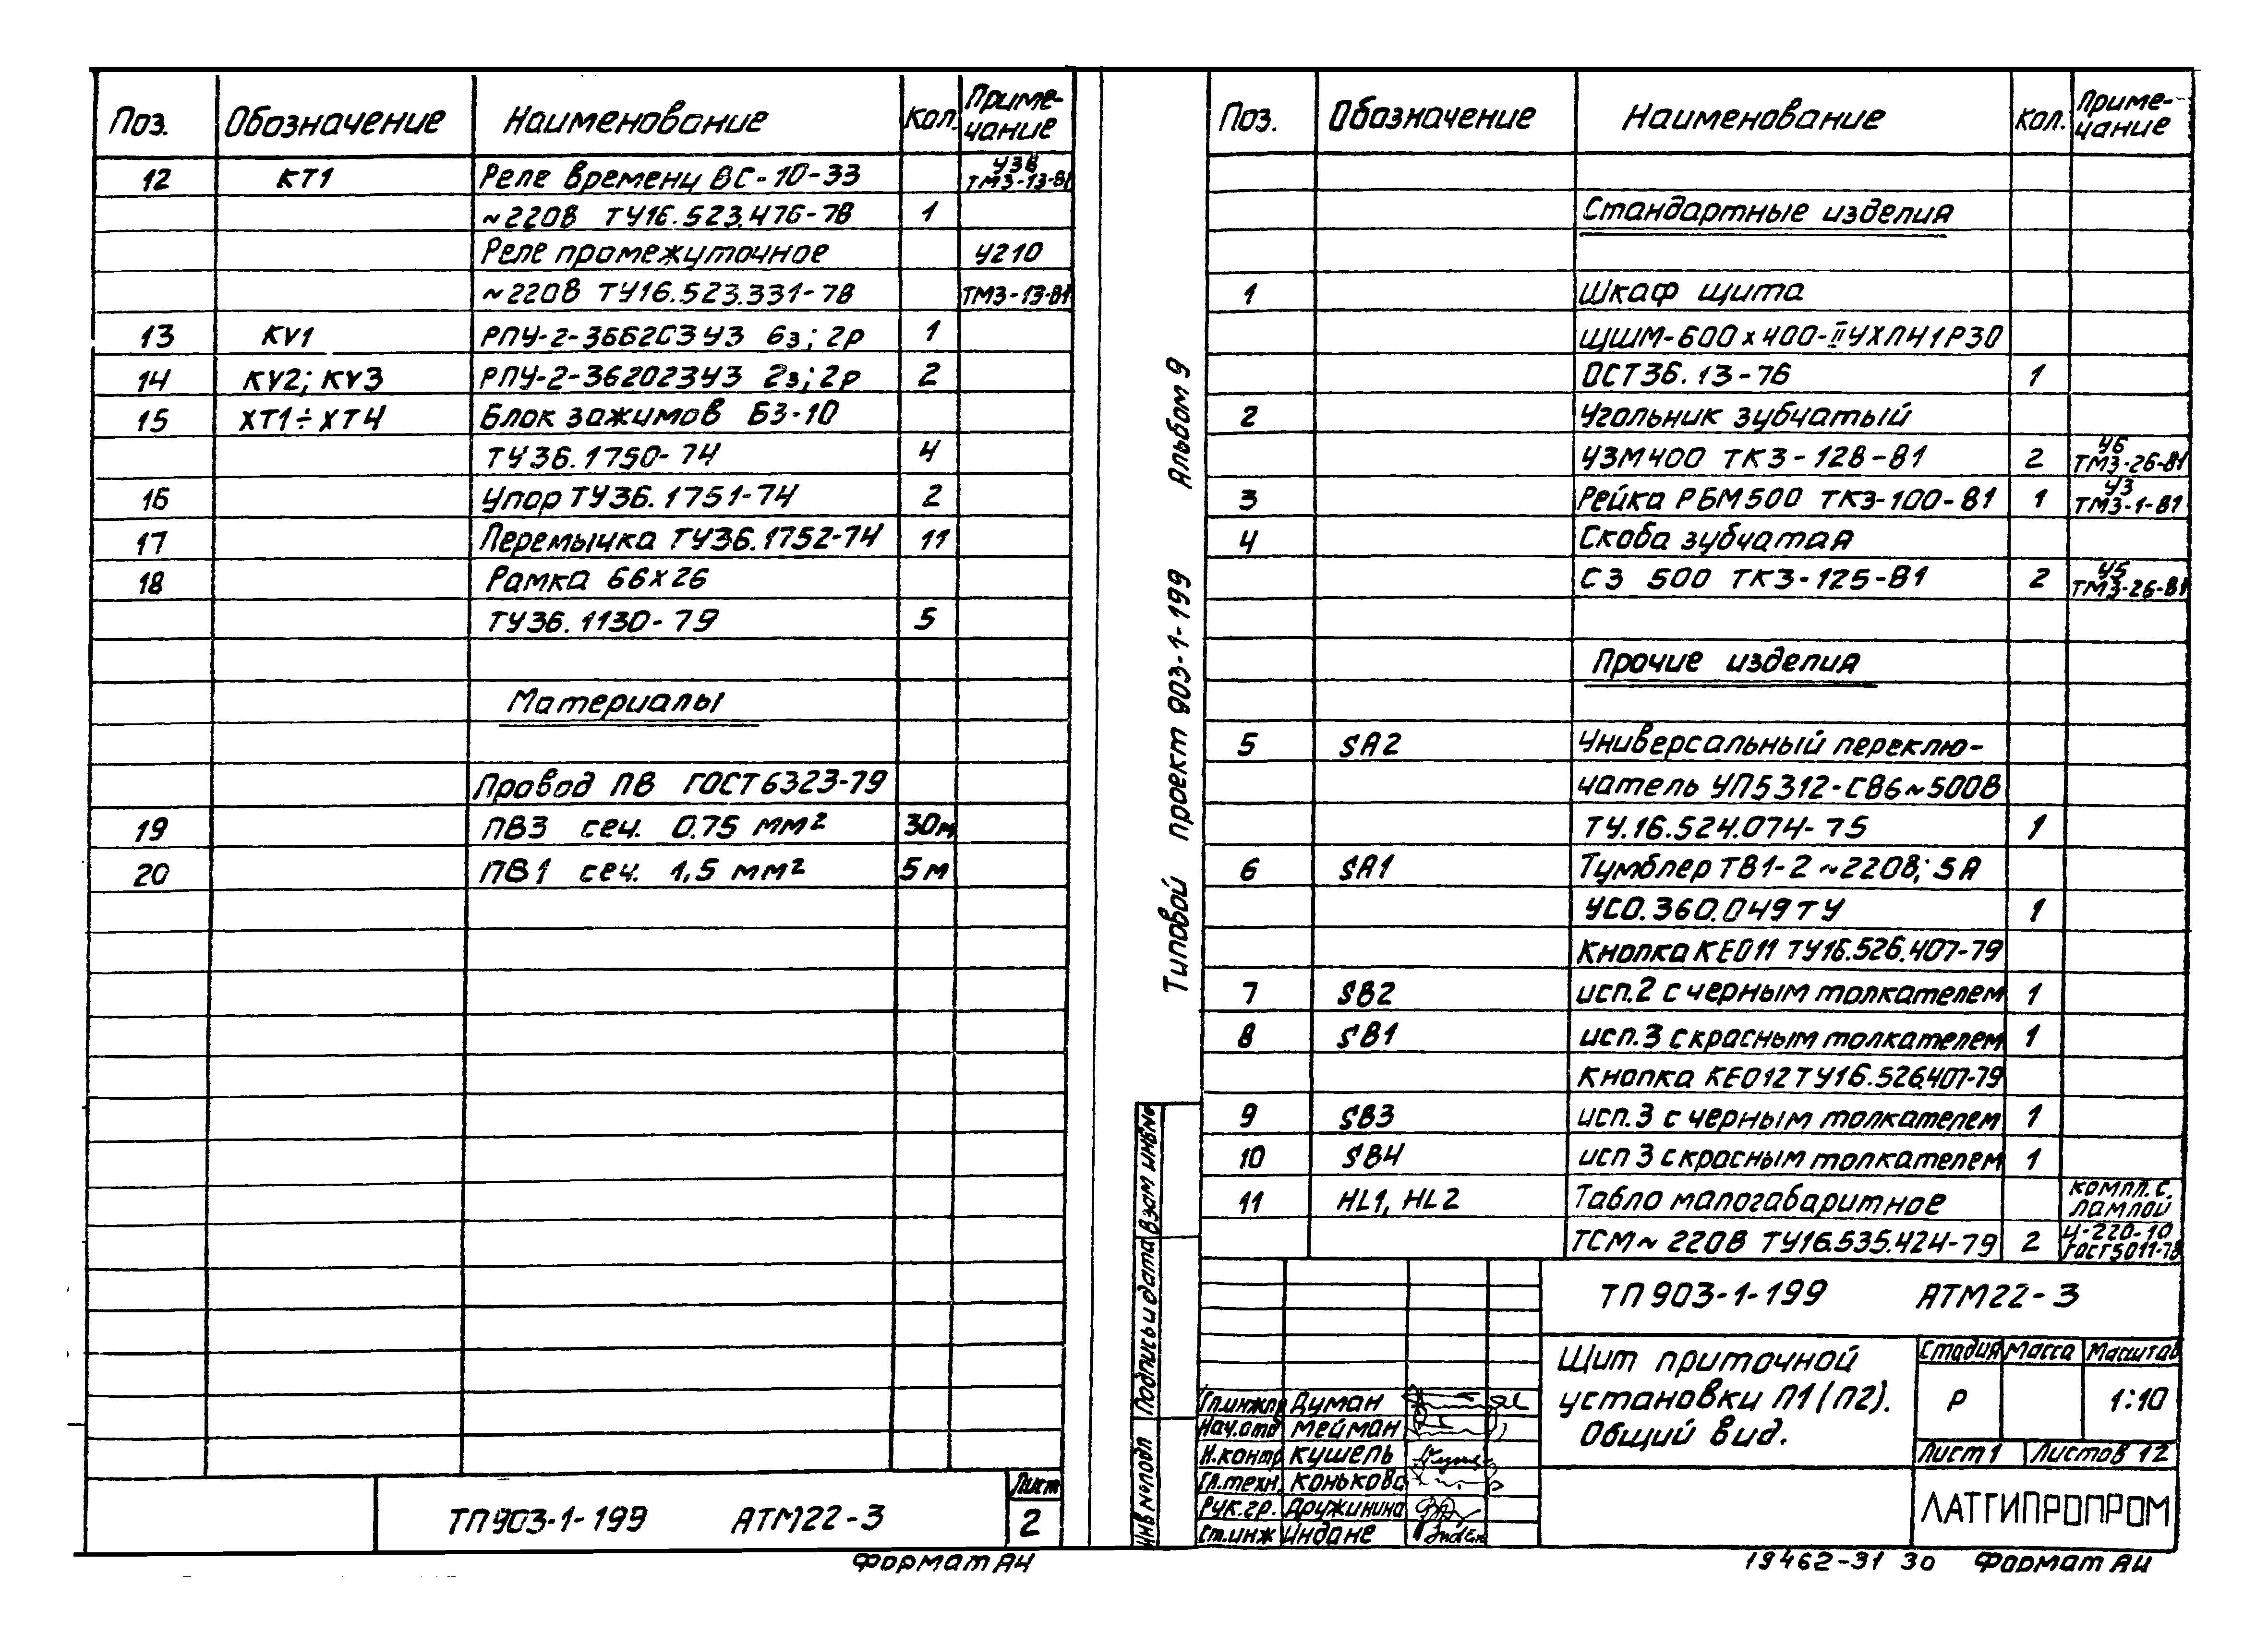 Поз. Обозначение Наименование Кол. Приме-
чание
12 КТ1 Реле времени ВС-10-33 У38
ТМ3-13-81
~220В ТУ16.523.476-78 1
Реле промежуточное У210
~220В ТУ16.523.331-78 ТМ3-13-81
13 KV1 РПУ-2-36620343 6з; 2р 1
14 KV2; KV3 РПУ-2-362023У3 2з; 2р 2
15 ХТ1÷ХТ4 Блок зажимов БЗ-10
ТУ36.1750-74 4
16 Упор ТУ36.1751-74 2
17 Перемычка ТУ36.1752-74 11
18 Рамка 66х26
ТУ36.1130-79 5
Материалы
Провод ПВ ГОСТ 6323-79
19 ПВ3 сеч. 0.75 мм² 30м
20 ПВ1 сеч. 1,5 мм² 5м
ТП903-1-199 АТМ22-3
Лист
2
Формат А4
Альбом 9
Типовой проект 903-1-199
Взам инв №
Подпись и дата
Инв № подл
Поз. Обозначение Наименование Кол. Приме-
чание
Стандартные изделия
1 Шкаф щита
ЩШМ-600х400-II УХЛ41Р30
ОСТ36.13-76 1
2 Угольник зубчатый
УЗМ400 ТК3-128-81 2 У6
ТМ3-26-81
3 Рейка РБМ500 ТК3-100-81 1 У3
ТМ3-1-81
4 Скоба зубчатая
СЗ 500 ТК3-125-81 2 У5
ТМ3-26-81
Прочие изделия
5 SA2 Универсальный переклю-
чатель УП5312-С86~500В
ТУ.16.524.074-75 1
6 SA1 Тумблер ТВ1-2 ~220В; 5А
УСО.360.049ТУ 1
Кнопка КЕ011 ТУ16.526.407-79
7 SB2 исп.2 с черным толкателем 1
8 SB1 исп.3 с красным толкателем 1
Кнопка КЕ012 ТУ16.526.407-79
9 SB3 исп.3 с черным толкателем 1
10 SB4 исп 3 с красным толкателем 1
11 HL1, HL2 Табло малогабаритное компл. с.
лампой
ТСМ~ 220В ТУ16.535.424-79 2 Ц-220-10
ГОСТ5011-78
ТП903-1-199 АТМ22-3
Щит приточной
установки П1(П2).
Общий вид.
Стадия Масса Масштаб
Р 1:10
Лист 1 Листов 12
ЛАТГИПРОПРОМ
Гл.инж.пр Думан
Нач.отд Мейман
Н.контр Кушель
Гл.техн. Конькова
Рук.гр. Дружинина
Ст.инж Индане
19462-31 30 Формат А4